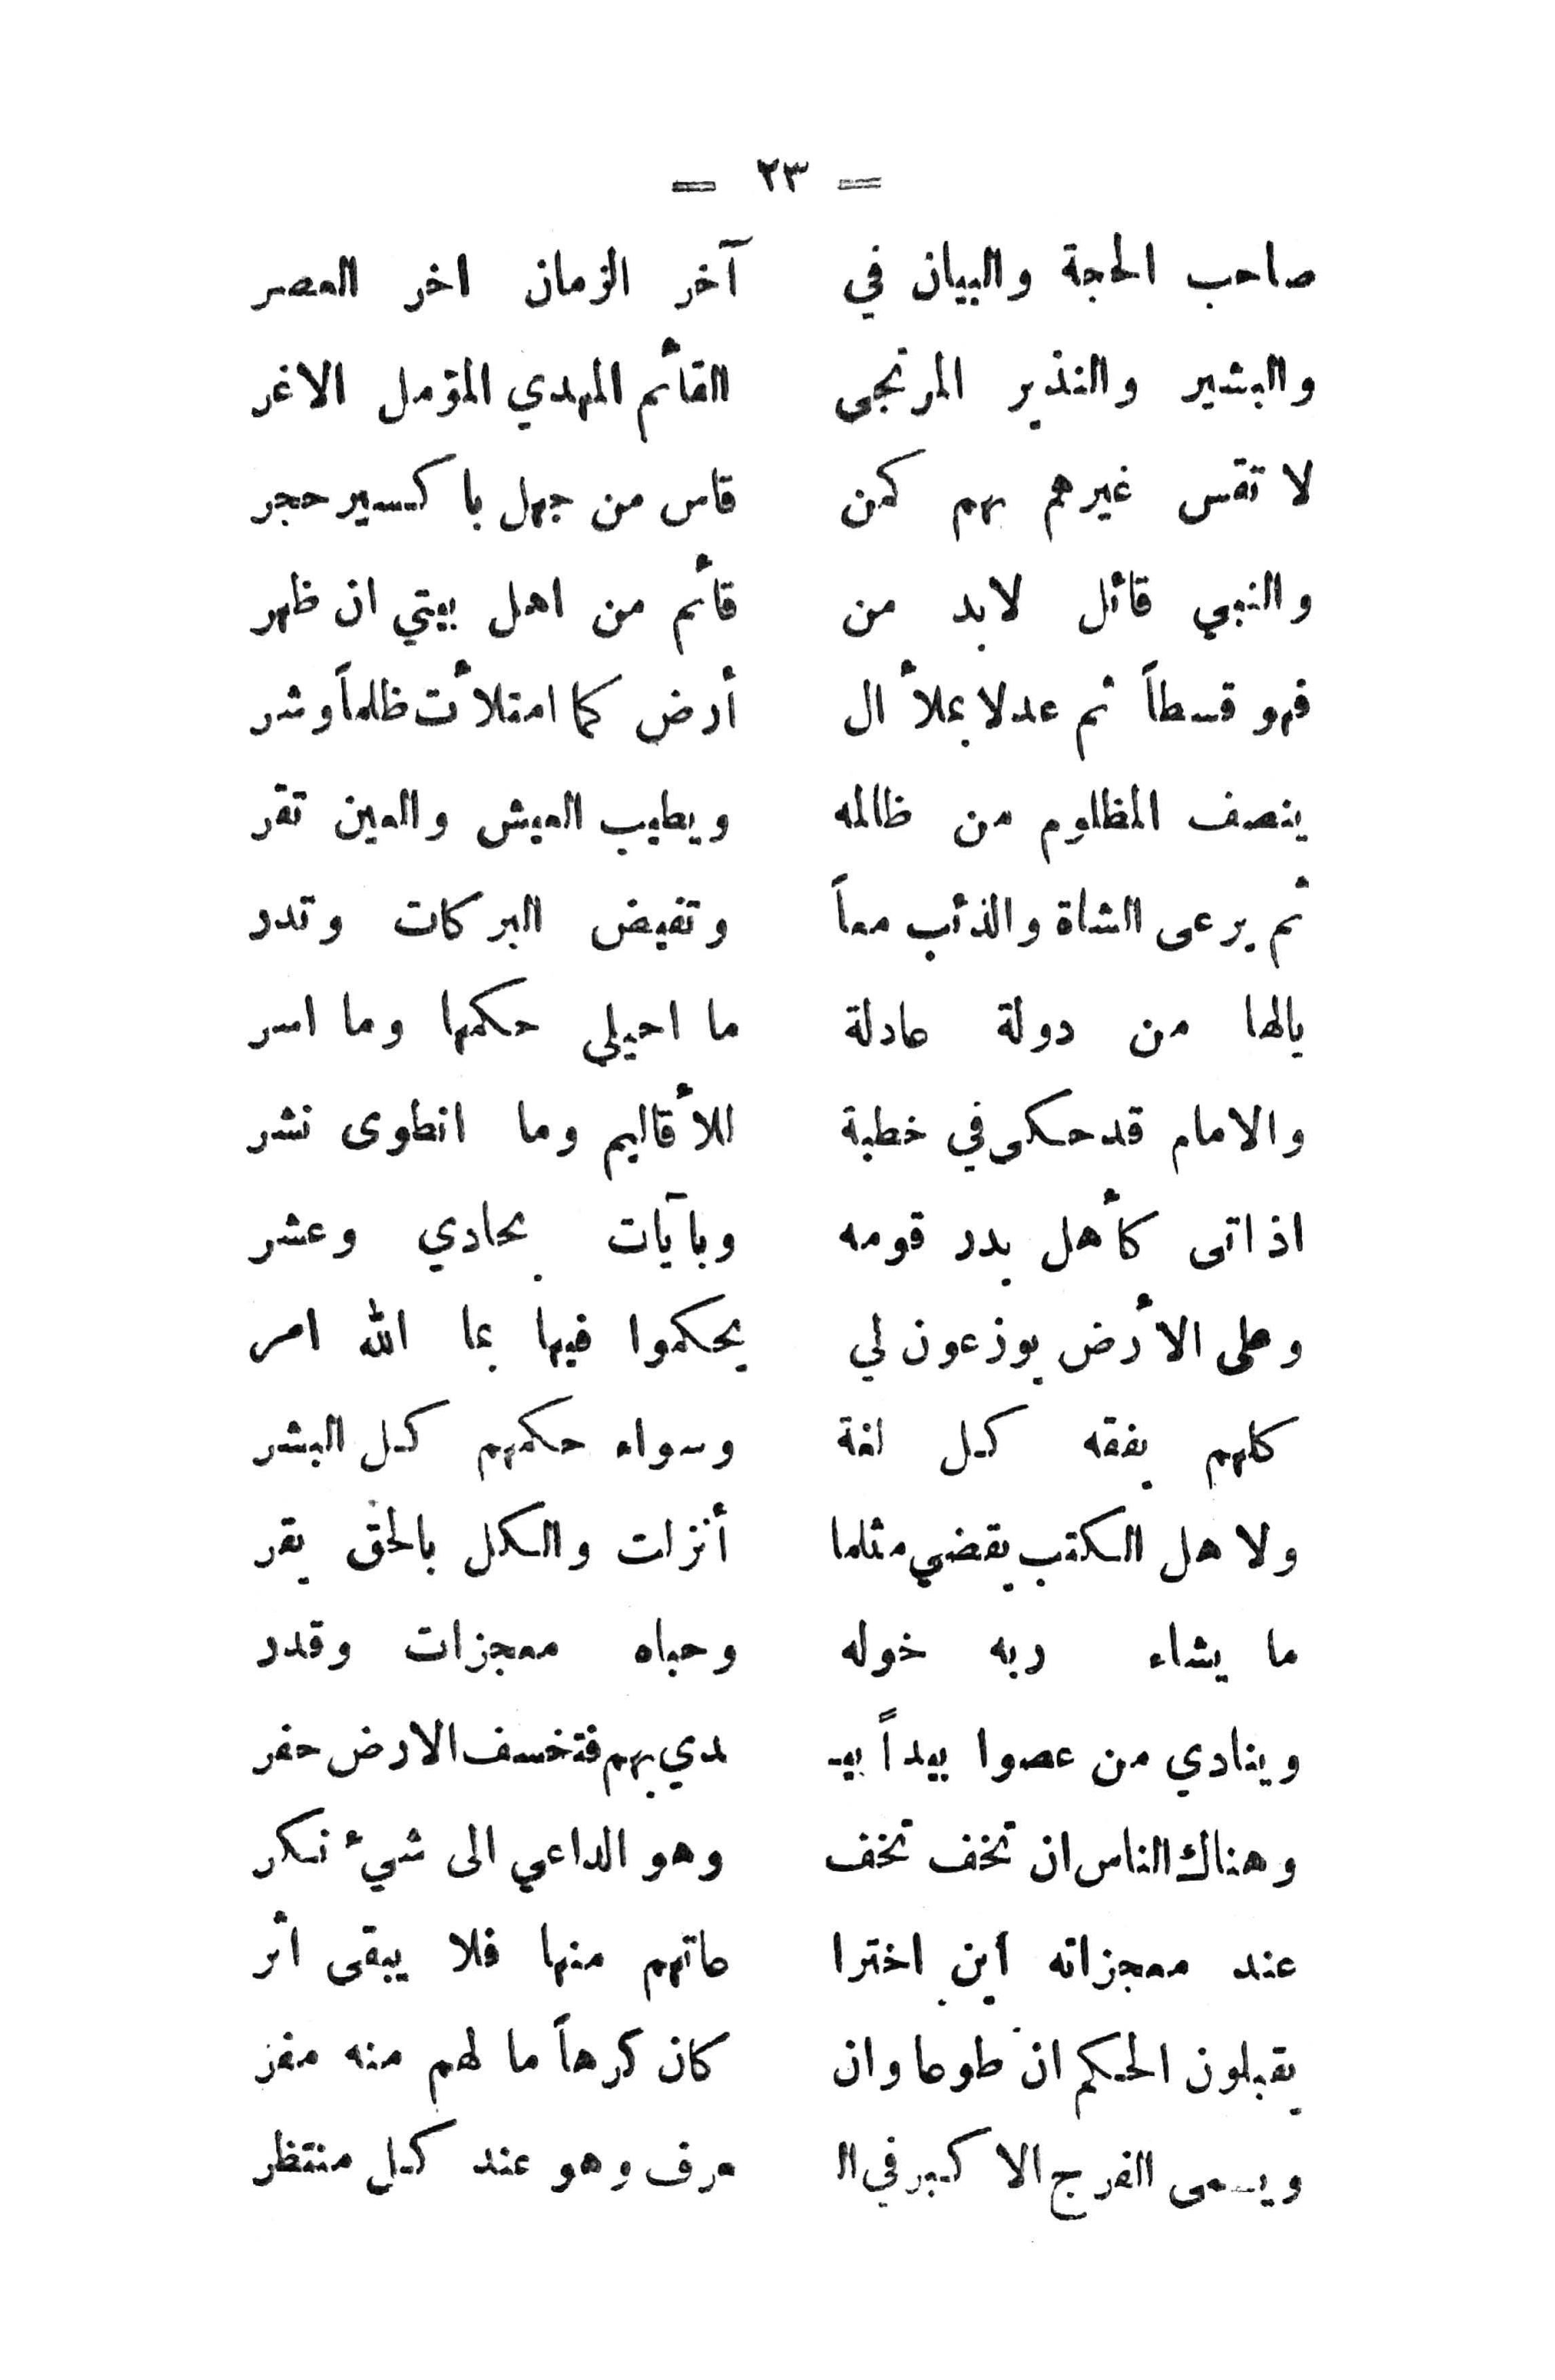 = ٢٣ =
صاحب الحجة والبيان في آخر الزمان اخر العصر
والبشير والنذير المرتجى القائم المهدي المؤمل الاغر
لا تقس غيرهم بهم كمن قاس من جهل باكسير حجر
والنبي قائل لابد من قائم من اهل بيتي ان ظهر
فهو قسطاً ثم عدلا يملأ ال أرض كما امتلأت ظلماً وشر
ينصف المظلوم من ظالمه ويطيب العيش والعين تقر
ثم يرعى الشاة والذئب معاً وتفيض البركات وتدر
يالها من دولة عادلة ما احيلى حكمها وما اسر
والامام قد حكى في خطبة للأقاليم وما انطوى نشر
اذ اتى كأهل بدر قومه وبآيات بحادي وعشر
وعلى الأرض يوزعون لي يحكموا فيها بما الله امر
كلهم يفقه كل لغة وسواء حكمهم كل البشر
ولا هل الكتب يقضي مثلما أنزلت والكل بالحق يقر
ما يشاء ربه خوله وحباه معجزات وقدر
وينادي من عصوا بيداً بيـ ـدي بهم فتخسف الارض حفر
وهناك الناس ان تخف تخف وهو الداعي الى شيء نكر
عند معجزاته أين اخترا عاتهم منها فلا يبقى اثر
يقبلون الحكم ان طوعا وان كان كرهاً ما لهم منه مفر
ويسمى الفرج الاكبر في ال عرف وهو عند كل منتظر